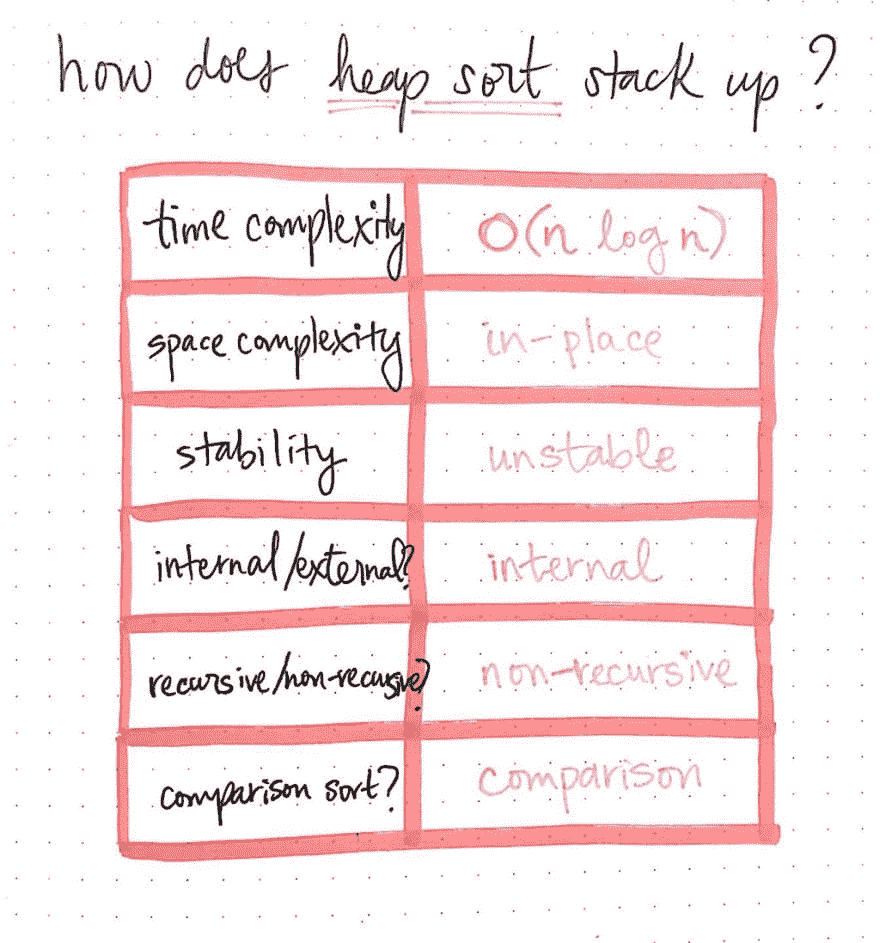 how does heap sort stack up?
time complexity O(n log n)
space complexity in-place
stability unstable
internal/external? internal
recursive/non-recursive? non-recursive
comparison sort? comparison